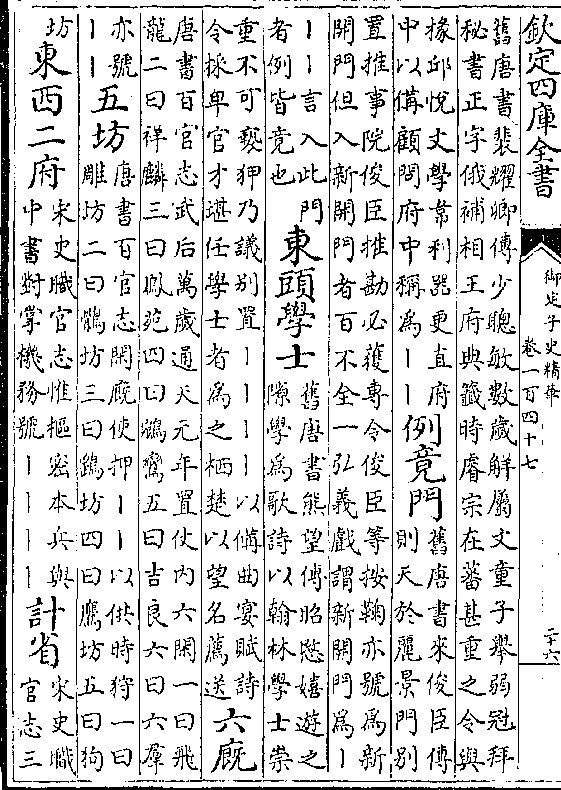 欽定四庫全書
御定子史精華
卷一百四十七
二十六
舊唐書裴耀卿傳少聰敏數歲解屬文童子舉弱冠拜
秘書正字俄補相王府典籤時睿宗在蕃甚重之令與
掾邱悅文學韋利器更直府
中以備顧問府中稱為丨丨
例竟門
舊唐書來俊臣傳
則天於麗景門別
置推事院俊臣推勘必獲專令俊臣等按鞫亦號為新
開門但入新開門者百不全一弘義戲謂新開門為丨
丨丨言入此門
者例皆竟也
東頭學士
舊唐書熊望傳昭愍嬉遊之
隙學為歌詩以翰林學士崇
重不可褻狎乃議別置丨丨丨丨以備曲宴賦詩
令採卑官才堪任學士者為之栖楚以望名薦送
六廐
唐書百官志武后萬歲通天元年置仗內六閑一曰飛
龍二曰祥麟三曰鳳苑四曰鵷鸞五曰吉良六曰六羣
亦號
丨丨
五坊
唐書百官志閑廐使押丨丨以供時狩一曰
雕坊二曰鶻坊三曰鷂坊四曰鷹坊五曰狗
坊
東西二府
宋史職官志惟樞密本兵與
中書對掌機務號丨丨丨丨
計省
宋史職
官志三